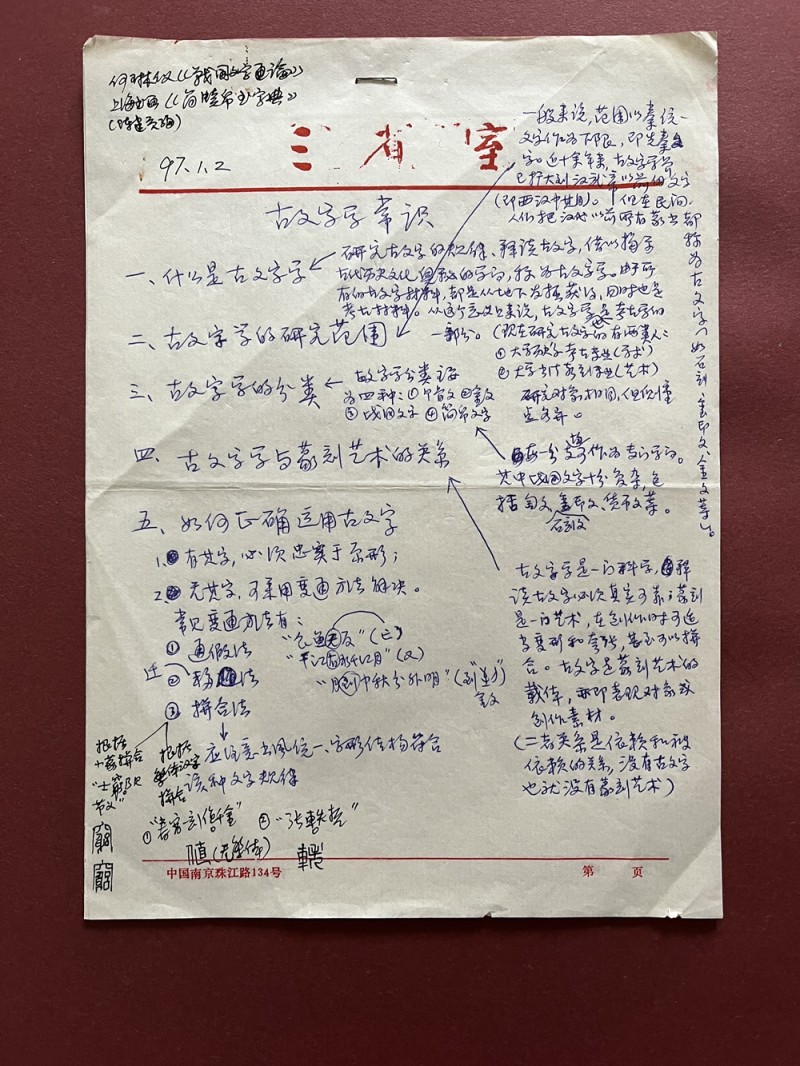 何琳仪《战国文字通论》
上海书画《简牍帛书字典》
(陈建贡编)
97.1.2
三省室
古文字学常识
一、什么是古文字学
研究古文字的规律、释读古文字,借以揭示
古代历史文化

的学问,称为古文字学。由于所
有的古文字材料,都是从地下发掘获得,同时也是
考古材料。从这个意义上来说,古文字学是考古学的
一部分。
(现在研究古文字的有两类人:
① 大学历史考古专业(学术)
② 大学书法篆刻专业(艺术)
研究对象相同,但侧重
点各异。
二、古文字学的研究范围
一般来说,范围以秦统一
文字作为下限,即先秦文
字。近十余年来,古文字学界
已扩大到汉武帝以前的文字
(即西汉中其目)。但在民间,
人们把汉代以前所有篆书都
称为古文字(如石刻、玺印文、金文等)。
三、古文字学的分类
古文字学分类主要
为四种:①甲骨文 ②金文
③战国文字 ④简帛文字
每一分支可作为专门学问。
其中战国文字十分复杂,包
括匋文、玺印文、货币文等。
石刻文
四、古文字学与篆刻艺术的关系
古文字学是一门科学,释
读古文字必须真实可靠;篆刻
是一门艺术,在创作时可适
当变形和夸张,甚至可以拼
合。古文字是篆刻艺术的
载体,亦即表现对象或
创作素材。
(二者关系是依赖和被
依赖的关系,没有古文字
也就没有篆刻艺术)
五、如何正确运用古文字
1. 有其字,必须忠实于原形;
2. 无其字,可采用变通方法解决。
常见变通方法有:
① 通假法
② 移 法
迁
③ 拼合法
应注意书风统一、字形结构符合
该种文字规律
根据
小篆拼合
根据
繁体汉字
拼合
中国南京珠江路134号
第 页